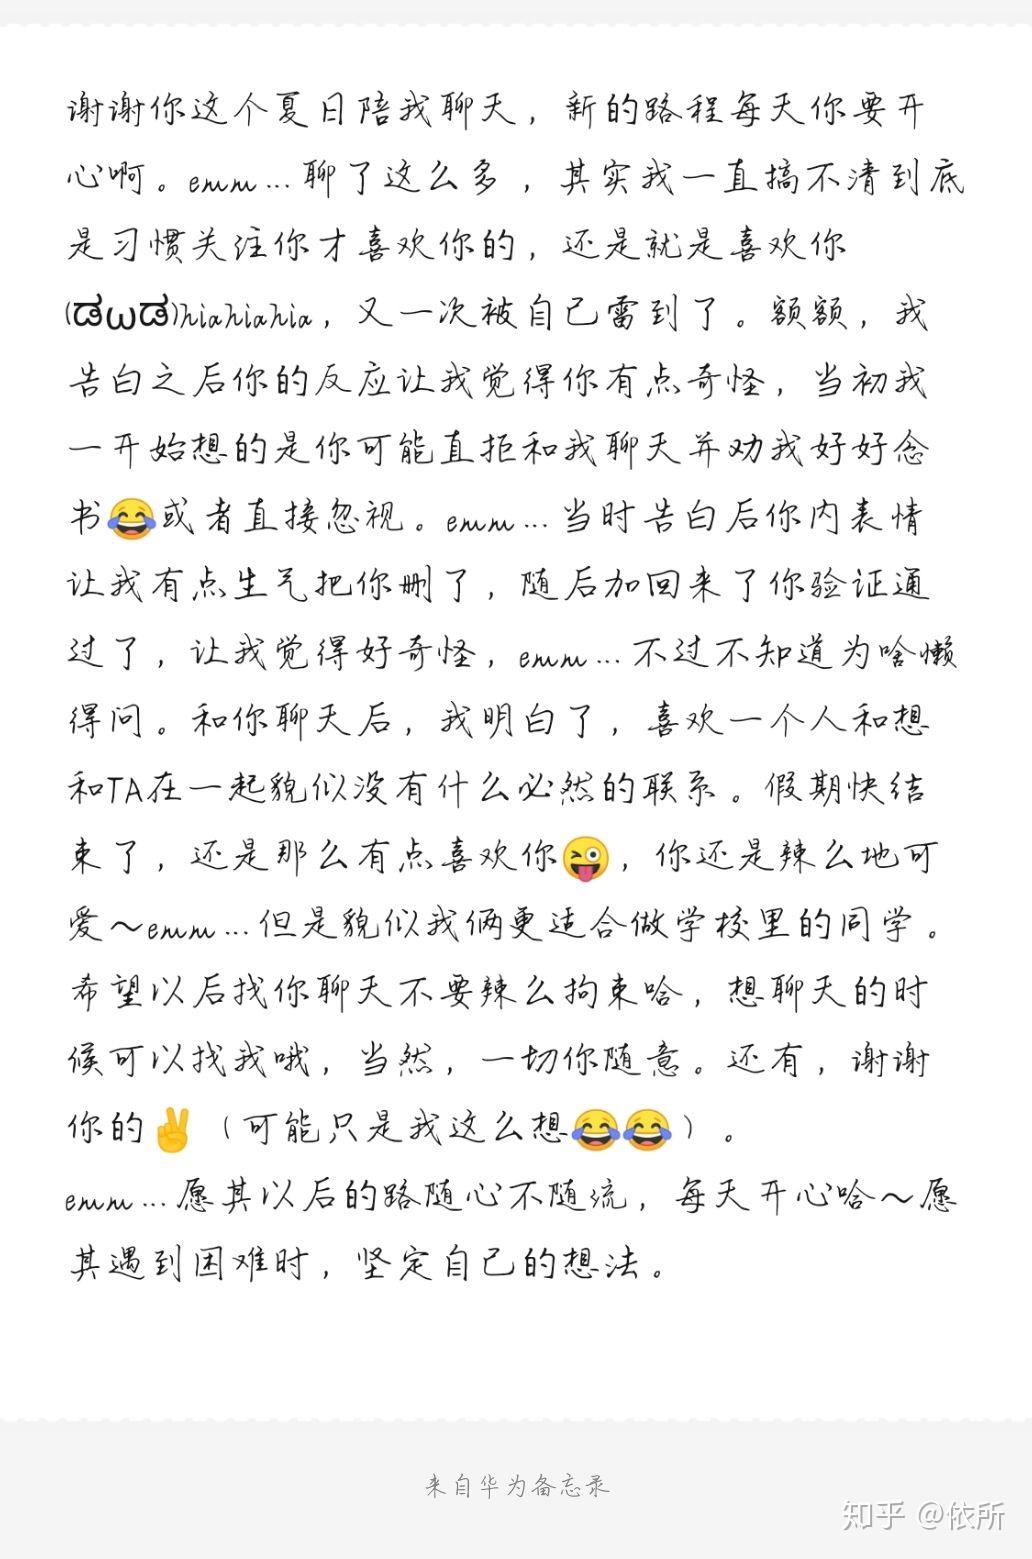 谢谢你这个夏日陪我聊天，新的路程每天你要开
心啊。emm...聊了这么多，其实我一直搞不清到底
是习惯关注你才喜欢你的，还是就是喜欢你
(ಡωಡ)hiahiahia，又一次被自己雷到了。额额，我
告白之后你的反应让我觉得你有点奇怪，当初我
一开始想的是你可能直拒和我聊天并劝我好好念
书😂或者直接忽视。emm...当时告白后你内表情
让我有点生气把你删了，随后加回来了你验证通
过了，让我觉得好奇怪，emm...不过不知道为啥懒
得问。和你聊天后，我明白了，喜欢一个人和想
和TA在一起貌似没有什么必然的联系。假期快结
束了，还是那么有点喜欢你😜，你还是辣么地可
爱～emm...但是貌似我俩更适合做学校里的同学。
希望以后找你聊天不要辣么拘束哈，想聊天的时
候可以找我哦，当然，一切你随意。还有，谢谢
你的✌（可能只是我这么想😂😂）。
emm...愿其以后的路随心不随流，每天开心哈～愿
其遇到困难时，坚定自己的想法。
来自华为备忘录
知乎 @依所